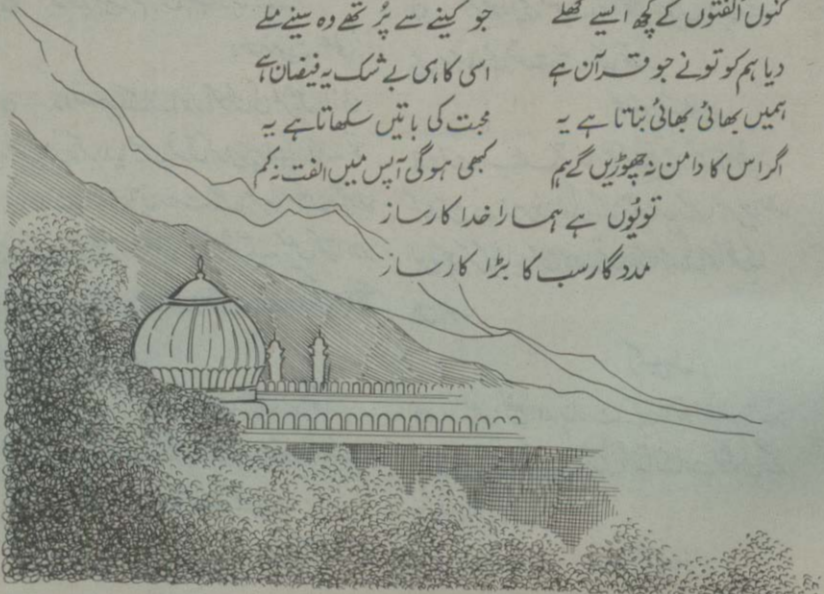 کنول الفتوں کے کچھ ایسے کھلے جو کینے سے پُر تھے وہ سینے ملے
دیا ہم کو تونے جو قرآن ہے اسی کا ہی بے شک یہ فیضان ہے
ہمیں بھائی بھائی بناتا ہے یہ محبت کی باتیں سکھاتا ہے یہ
اگر اس کا دامن نہ چھوڑیں گے ہم کبھی ہوگی آپس میں الفت نہ کم
تو یُوں ہے ہمارا خدا کارساز
مددگار سب کا بڑا کارساز